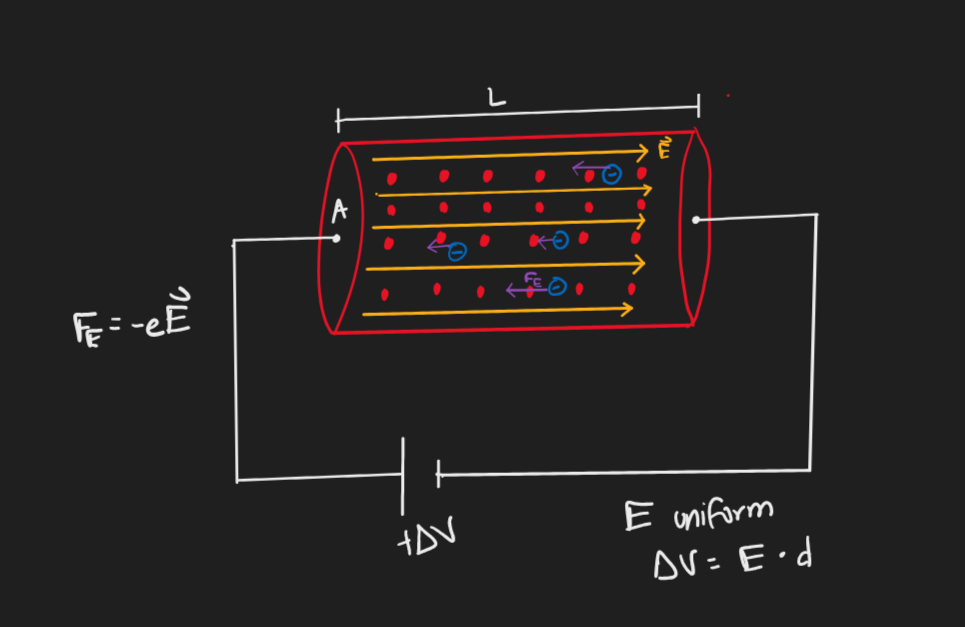 L
E⃗
A
⊖
⊖
⊖
F_E
⊖
F_E = -eE⃗
+ΔV
E uniform
ΔV = E · d